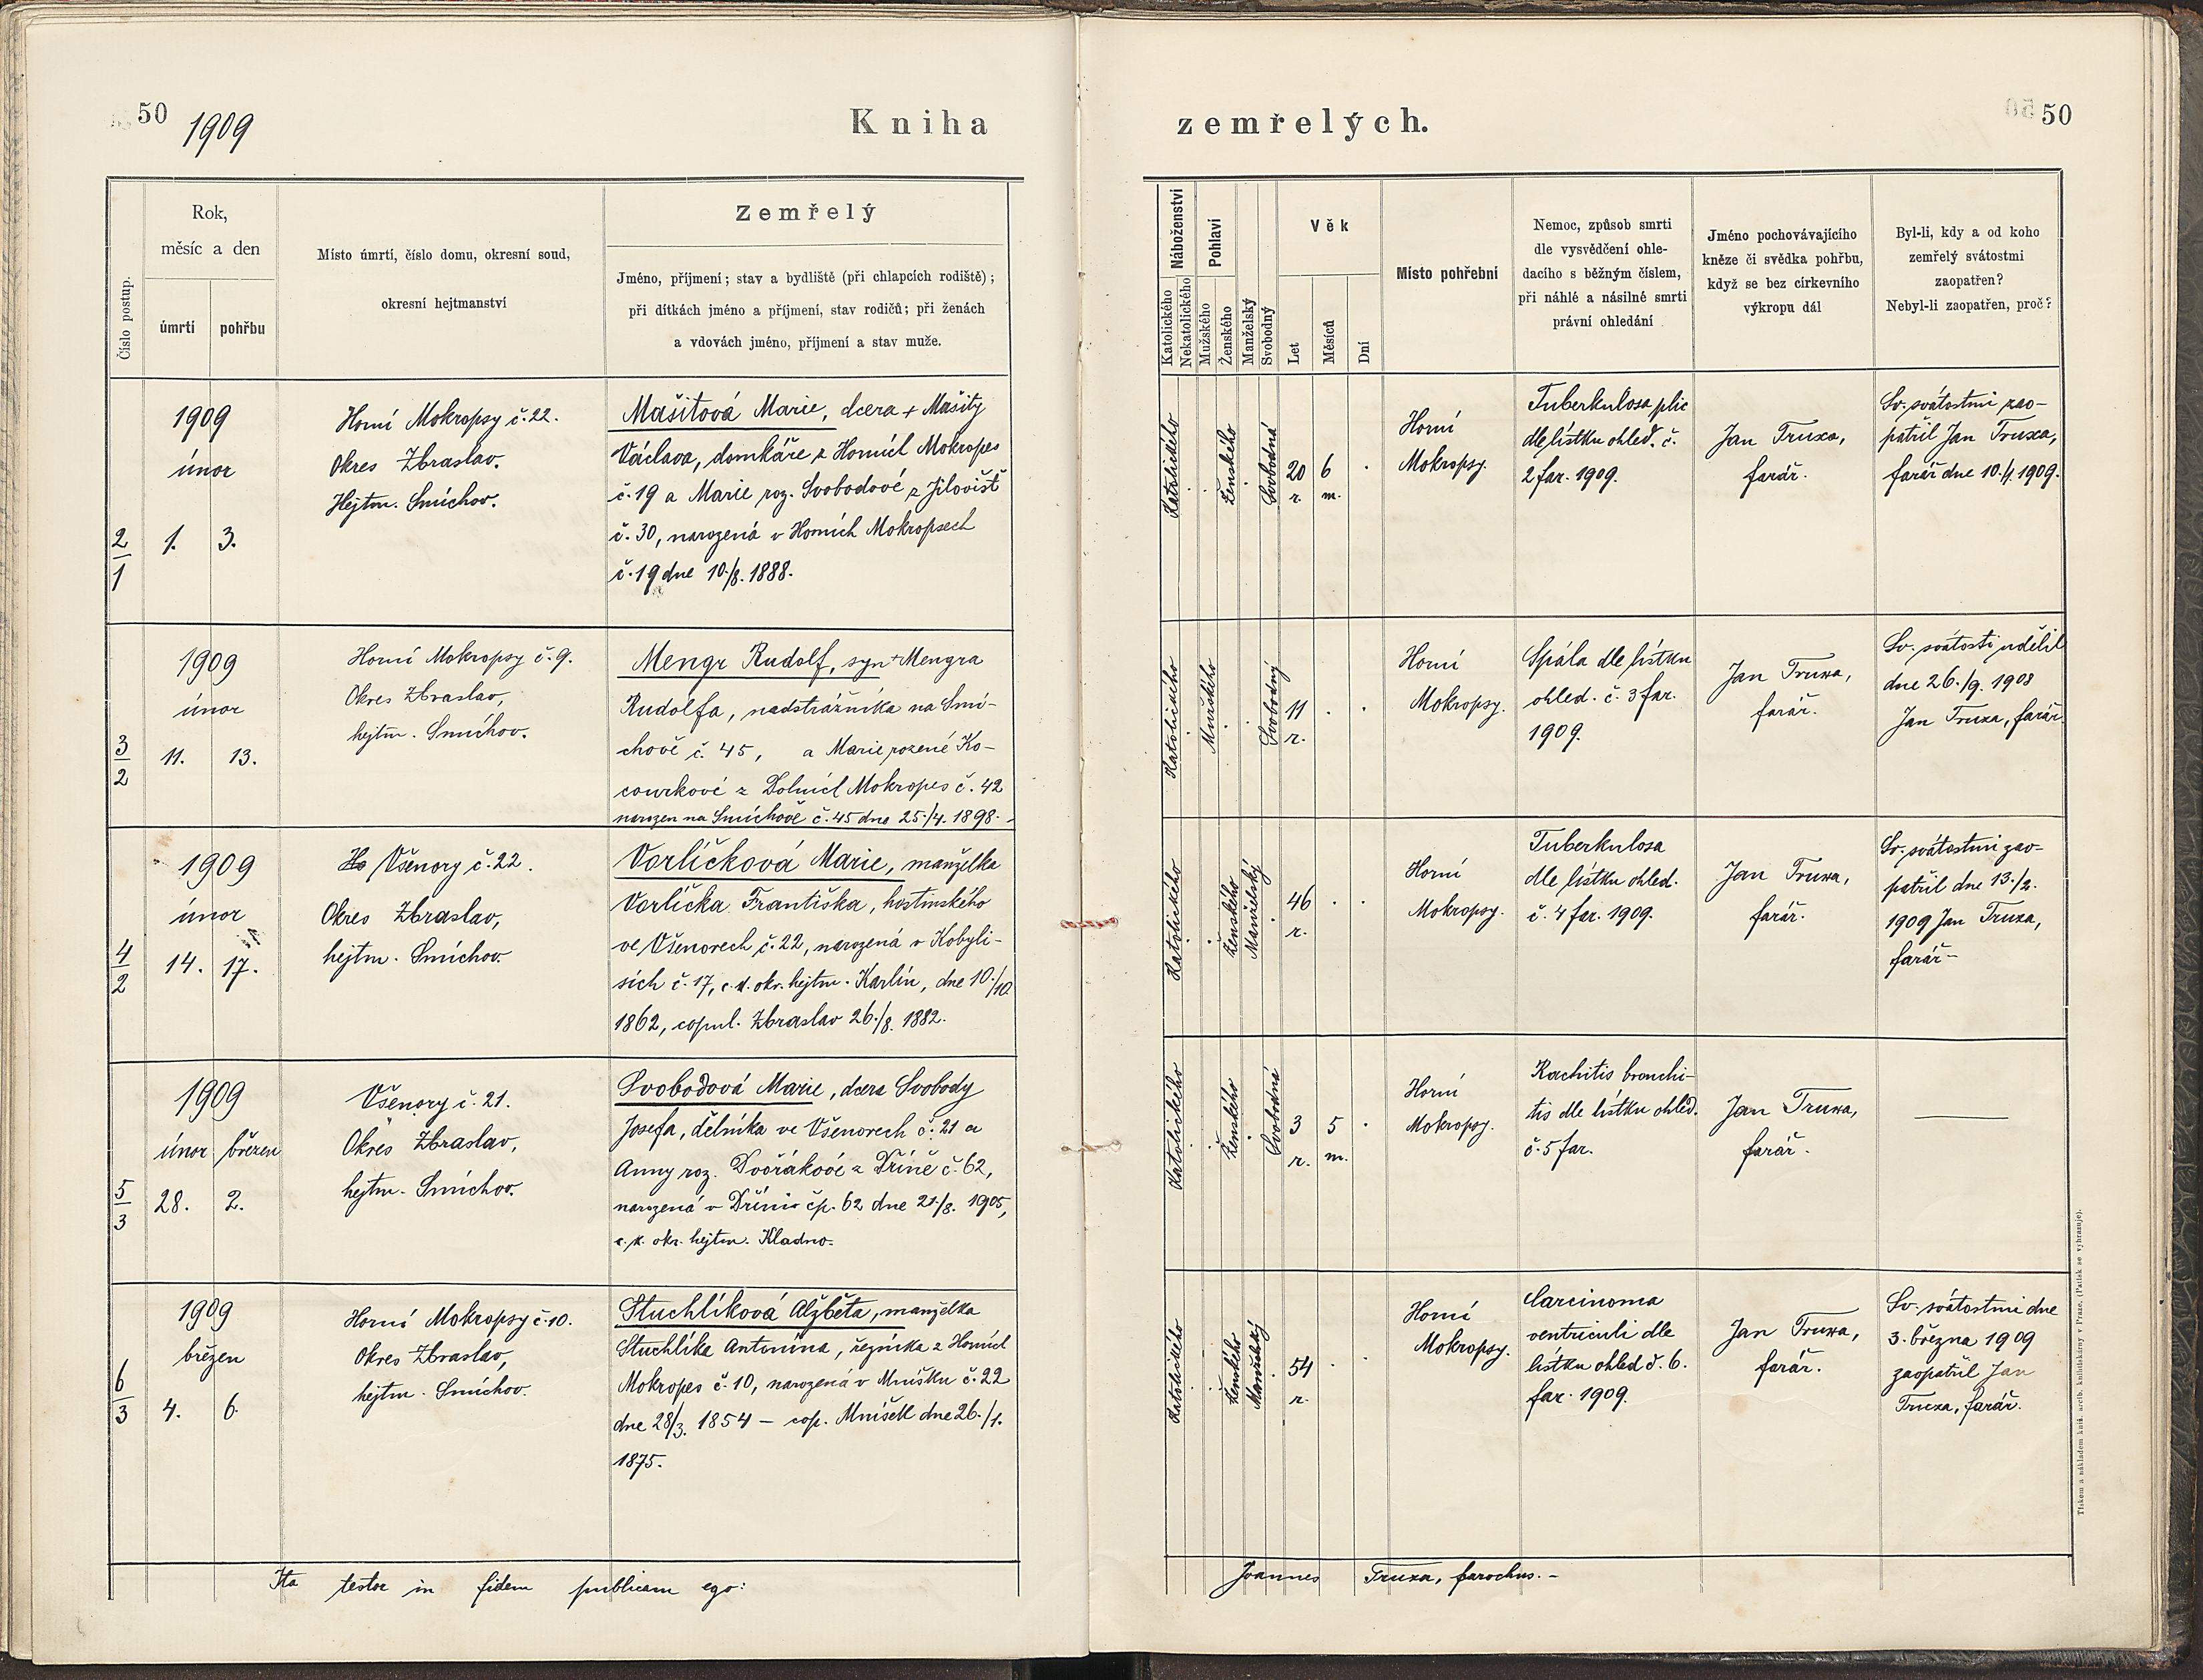 50
1909
Kniha
zemřelých.
50
Číslo postup.
Rok,
měsíc a den
úmrtí
pohřbu
Místo úmrtí, číslo domu, okresní soud,
okresní hejtmanství
Zemřelý
Jméno, příjmení; stav a bydliště (při chlapcích rodiště);
při dítkách jméno a příjmení, stav rodičů; při ženách
a vdovách jméno, příjmení a stav muže.
Náboženství
Katolického
Nekatolického
Pohlaví
Mužského
Ženského
Manželský
Svobodný
Věk
Let
Měsíců
Dní
Místo pohřební
Nemoc, způsob smrti
dle vysvědčení ohle-
dacího s běžným číslem,
při náhlé a násilné smrti
právní ohledání
Jméno pochovávajícího
kněze či svědka pohřbu,
když se bez církevního
výkropu dál
Byl-li, kdy a od koho
zemřelý svátostmi
zaopatřen?
Nebyl-li zaopatřen, proč?
2/1
1909
únor
1. 3.
Horní Mokropsy č. 22.
Okres Zbraslav.
Hejtm. Smíchov.
Mašitová Marie, dcera + Mašity
Václava, domkáře z Horních Mokropes
č. 19 a Marie roz. Svobodové z Jílovišť
č. 30, narozená v Horních Mokropsech
č. 19 dne 10./8. 1888.
Katolického
Ženského
Svobodná
20 r.
6 m.
Horní
Mokropsy.
Tuberkulosa plic
dle lístku ohled. č.
2 far. 1909.
Jan Truxa,
farář.
Sv. svátostmi zao-
patřil Jan Truxa,
farář dne 10./1. 1909.
3/2
1909
únor
11. 13.
Horní Mokropsy č. 9.
Okres Zbraslav,
hejtm. Smíchov.
Mengr Rudolf, syn + Mengra
Rudolfa, nadstrážníka na Smí-
chově č. 45, a Marie rozené Ko-
courkové z Dolních Mokropes č. 42
narozen na Smíchově č. 45 dne 25./4. 1898. -
Katolického
Mužského
Svobodný
11 r.
Horní
Mokropsy.
Spála dle lístku
ohled. č. 3 far.
1909.
Jan Truxa,
farář.
Sv. svátosti udělil
dne 26./9. 1908
Jan Truxa, farář.
4/2
1909
únor
14. 17.
Ho Všenory č. 22.
Okres Zbraslav,
hejtm. Smíchov.
Vorlíčková Marie, manželka
Vorlíčka Františka, hostinského
ve Všenorech č. 22, narozená v Kobyli-
sích č. 17, c. k. okr. hejtm. Karlín, dne 10./10.
1862, copul. Zbraslav 26./8. 1882.
Katolického
Ženského
Manželský
46 r.
Horní
Mokropsy.
Tuberkulosa
dle lístku ohled.
č. 4 far. 1909.
Jan Truxa,
farář.
Sv. svátostmi zao-
patřil dne 13./2.
1909 Jan Truxa,
farář -
5/3
1909
únor březen
28. 2.
Všenory č. 21.
Okres Zbraslav,
hejtm. Smíchov.
Svobodová Marie, dcera Svobody
Josefa, dělníka ve Všenorech č. 21 a
Anny roz. Dvořákové z Dříně č. 62,
narozená v Dříni čp. 62 dne 21./8. 1905,
c. k. okr. hejtm. Kladno.
Katolického
Ženského
Svobodná
3 r.
5 m.
Horní
Mokropsy.
Rachitis bronchi-
tis dle lístku ohled.
č. 5 far.
Jan Truxa,
farář.
6/3
1909
březen
4. 6.
Horní Mokropsy č. 10.
Okres Zbraslav,
hejtm. Smíchov.
Stuchlíková Alžběta, manželka
Stuchlíka Antonína, řezníka z Horních
Mokropes č. 10, narozená v Mníšku č. 22
dne 28/3. 1854 — cop. Mníšek dne 26./1.
1875.
Katolického
Ženského
Manželský
54 r.
Horní
Mokropsy.
Carcinoma
ventriculi dle
lístku ohled č. 6.
far. 1909.
Jan Truxa,
farář.
Sv. svátostmi dne
3. března 1909
zaopatřil Jan
Truxa, farář.
Ita testor in fidem publicam ego:
Joannes Truxa, parochus. -
Tiskem a nákladem kníž. arcib. knihtiskárny v Praze. (Patisk se vyhrazuje).